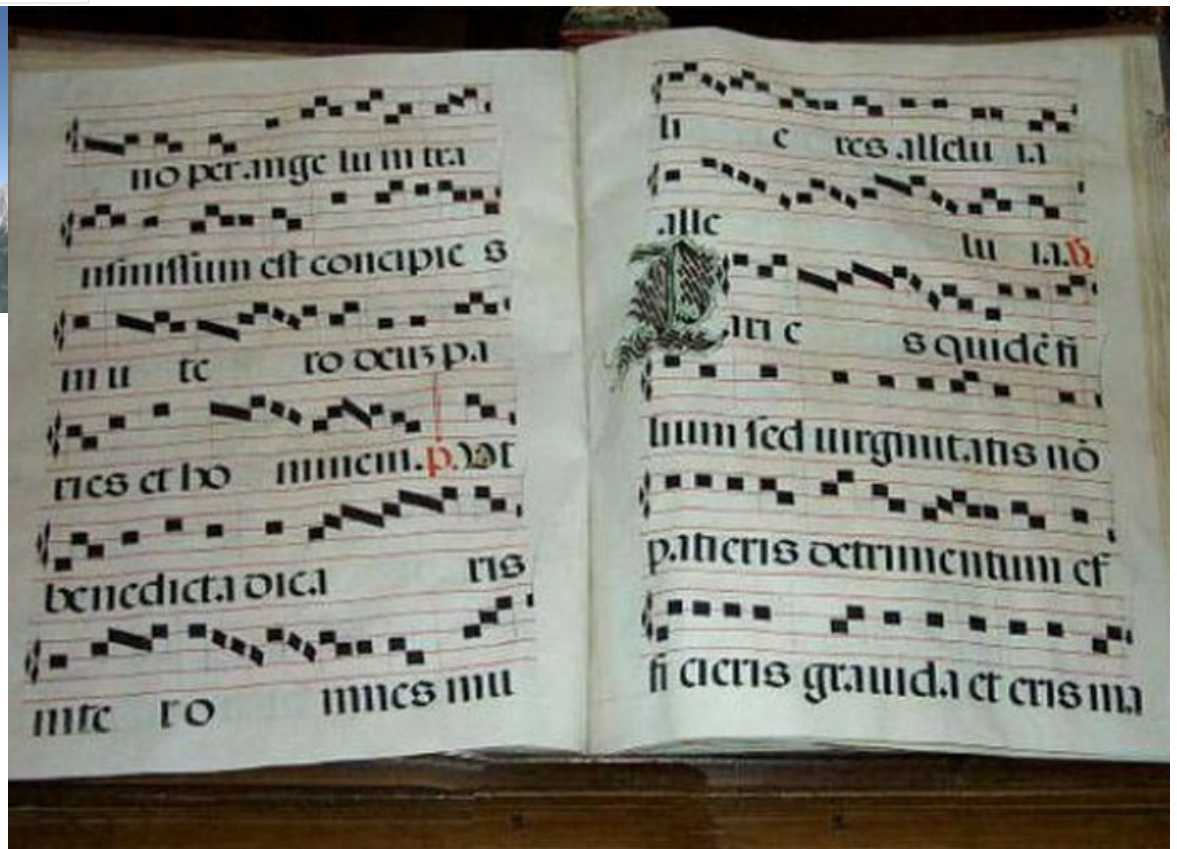 no per ange lum tra
nsmissum est concipie s
mu te ro deus pa
ries et ho minem. p. Vt
benedicta dica ris
inte r o mnes mu
li e res allelu ia
alle lu ia.
Pari e s quidē fi
lium sed uirginitatis nō
patieris detrimentum ef
fi cieris grauida et eris ma